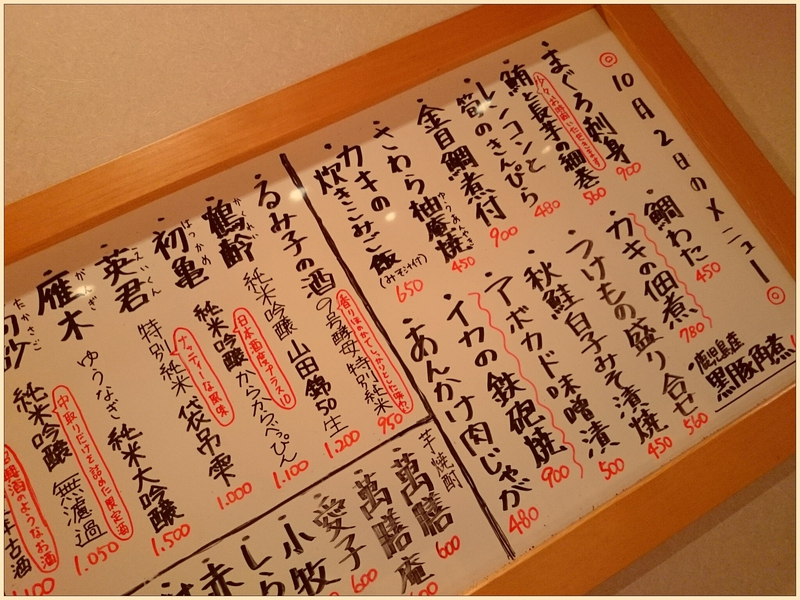 ◎10月2日のメニュー◎
まぐろ刺身 900
少々お時間いただきます
鮪と長芋の細巻 560
レンコンと
筍のきんぴら 480
金目鯛煮付 900
さわら柚庵焼 450
ゆうあんやき
カキの
炊きこみご飯
(みそ汁付) 650
鹿児島産
黒豚角煮
鯛わた 450
カキの佃煮 780
つけもの盛り合せ 560
秋鮭白子みそ漬焼 450
アボカド味噌漬 500
イカの鉄砲焼 900
あんかけ肉じゃが 480
るみ子の酒 9号酵母 特別純米 950
純米吟醸 山田錦50生 1.200
鶴齢 純米吟醸 からからべっぴん 1.100
かくれい
日本酒度プラス10
初亀 特別純米 袋吊雫 1.000
はつかめ
ナッティーな風味
英君 ゆうなぎ 純米大吟醸 1.500
えいくん
雁木 純米吟醸 無濾過 1.050
がんぎ
中取りだけを詰めた限定酒
たかさご
紹興酒のようなお酒
古酒
芋焼酎
萬膳 600
萬膳庵
愛子 600
小牧
しら
赤